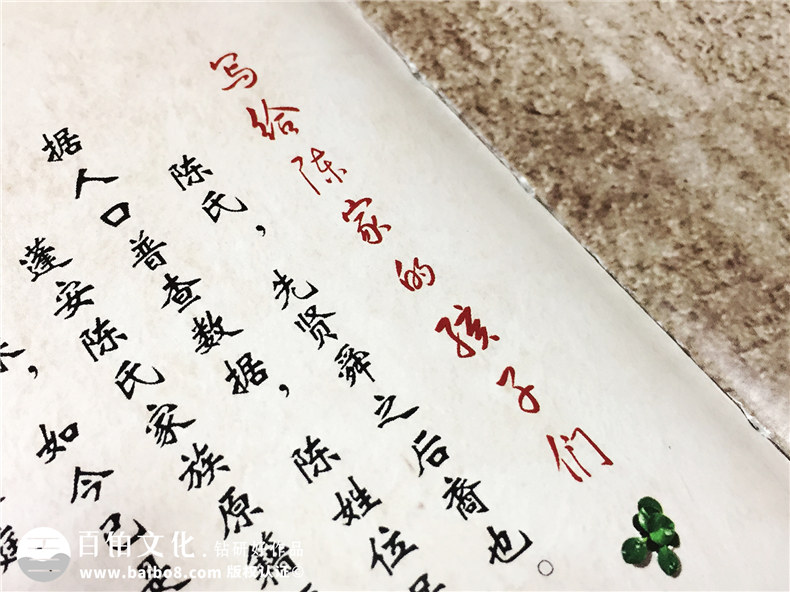 写给陈家的孩子们
陈氏，先贤舜之后裔也。
据人口普查数据，陈姓位
蓬安陈氏家族原籍
，如今已
庭
百铂文化.钻研好作品
www.baibo8.com 版权认证®